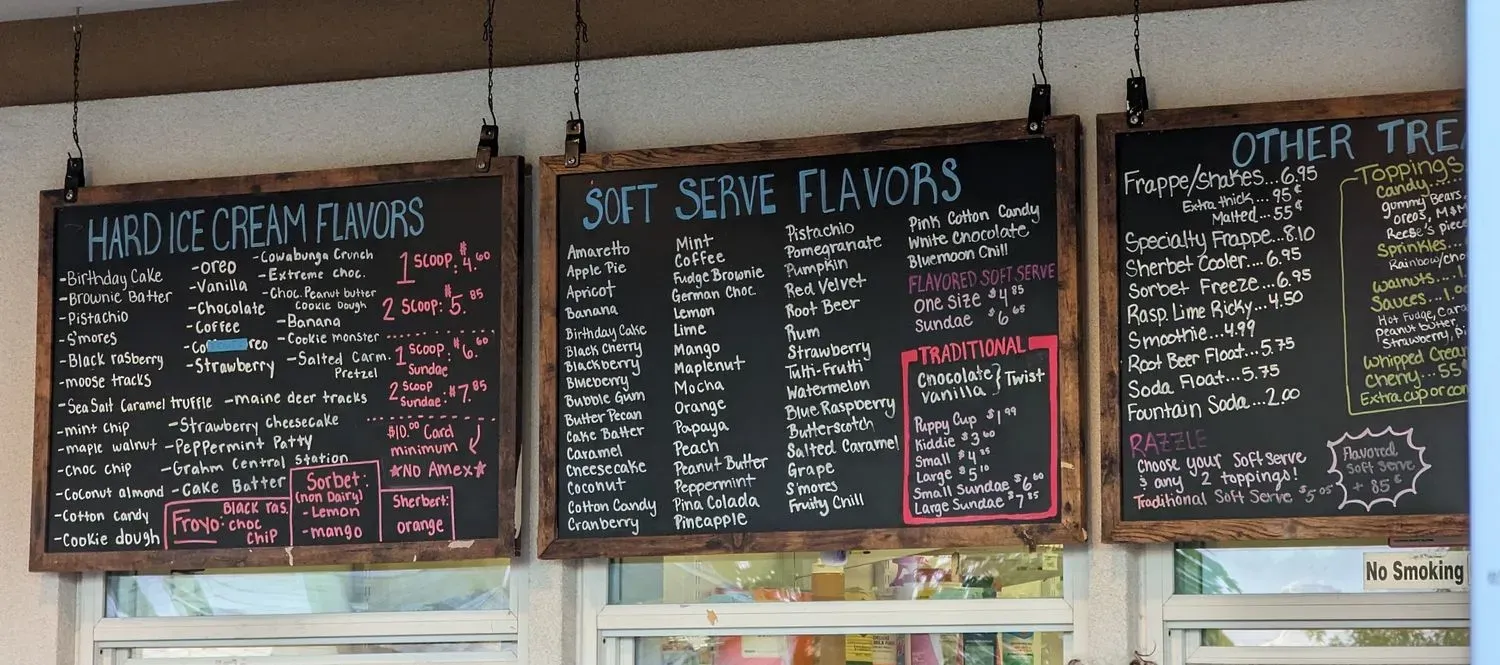 HARD ICE CREAM FLAVORS
-Birthday Cake
-Brownie Batter
-Pistachio
-S'mores
-Black rasberry
-moose tracks
-Sea Salt Caramel truffle
-mint chip
-maple walnut
-choc chip
-Coconut almond
-Cotton candy
-Cookie dough
-oreo
-Vanilla
-Chocolate
-Coffee
-Strawberry
-maine deer tracks
-Strawberry cheesecake
-Peppermint Patty
-Grahm Central Station
-Cake Batter
-Cowabunga Crunch
-Extreme choc.
-Choc. Peanut butter
Cookie Dough
-Banana
-Cookie monster
-Salted Carm.
Pretzel
1 scoop: $4.60
2 scoop: $5.85
1 scoop: $6.60
Sundae
2 scoop
Sundae: $7.85
$10.00 Card
minimum
*No Amex*
Froyo: Black ras.
choc
chip
Sorbet:
(non Dairy)
-Lemon
-mango
Sherbert:
orange
SOFT SERVE FLAVORS
Amaretto
Apple Pie
Apricot
Banana
Birthday Cake
Black Cherry
Blackberry
Blueberry
Bubble Gum
Butter Pecan
Cake Batter
Caramel
Cheesecake
Coconut
Cotton Candy
Cranberry
Mint
Coffee
Fudge Brownie
German Choc.
Lemon
Lime
Mango
Maplenut
Mocha
Orange
Papaya
Peach
Peanut Butter
Peppermint
Pina Colada
Pineapple
Pistachio
Pomegranate
Pumpkin
Red Velvet
Root Beer
Rum
Strawberry
Tutti-Frutti
Watermelon
Blue Raspberry
Butterscotch
Salted Caramel
Grape
S'mores
Fruity Chill
Pink Cotton Candy
White Chocolate
Bluemoon Chill
FLAVORED SOFT SERVE
One size $4.85
Sundae $6.65
TRADITIONAL
Chocolate } Twist
Vanilla
Puppy Cup $1.99
Kiddie $3.60
Small $4.25
Large $5.10
Small Sundae $6.60
Large Sundae $7.85
OTHER TREA
Frappe/Shakes...6.95
Extra thick...95¢
Malted...55¢
Specialty Frappe...8.10
Sherbet Cooler...6.95
Sorbet Freeze...6.95
Rasp. Lime Ricky...4.50
Smoothie...4.99
Root Beer Float...5.75
Soda Float...5.75
Fountain Soda...2.00
RAZZLE
Choose your Soft Serve
& any 2 toppings!
Traditional Soft Serve $5.05
Flavored
Soft Serve
+ 85¢
Toppings
Candy....
Gummy Bears,
Oreos, M&M
Reese's piece
Sprinkles...
Rainbow/cho
Walnuts...1.
Sauces...1.00
Hot Fudge, Cara
Peanut butter,
Strawberry, Pi
Whipped Crean
Cherry...55¢
Extra cup or con
No Smoking